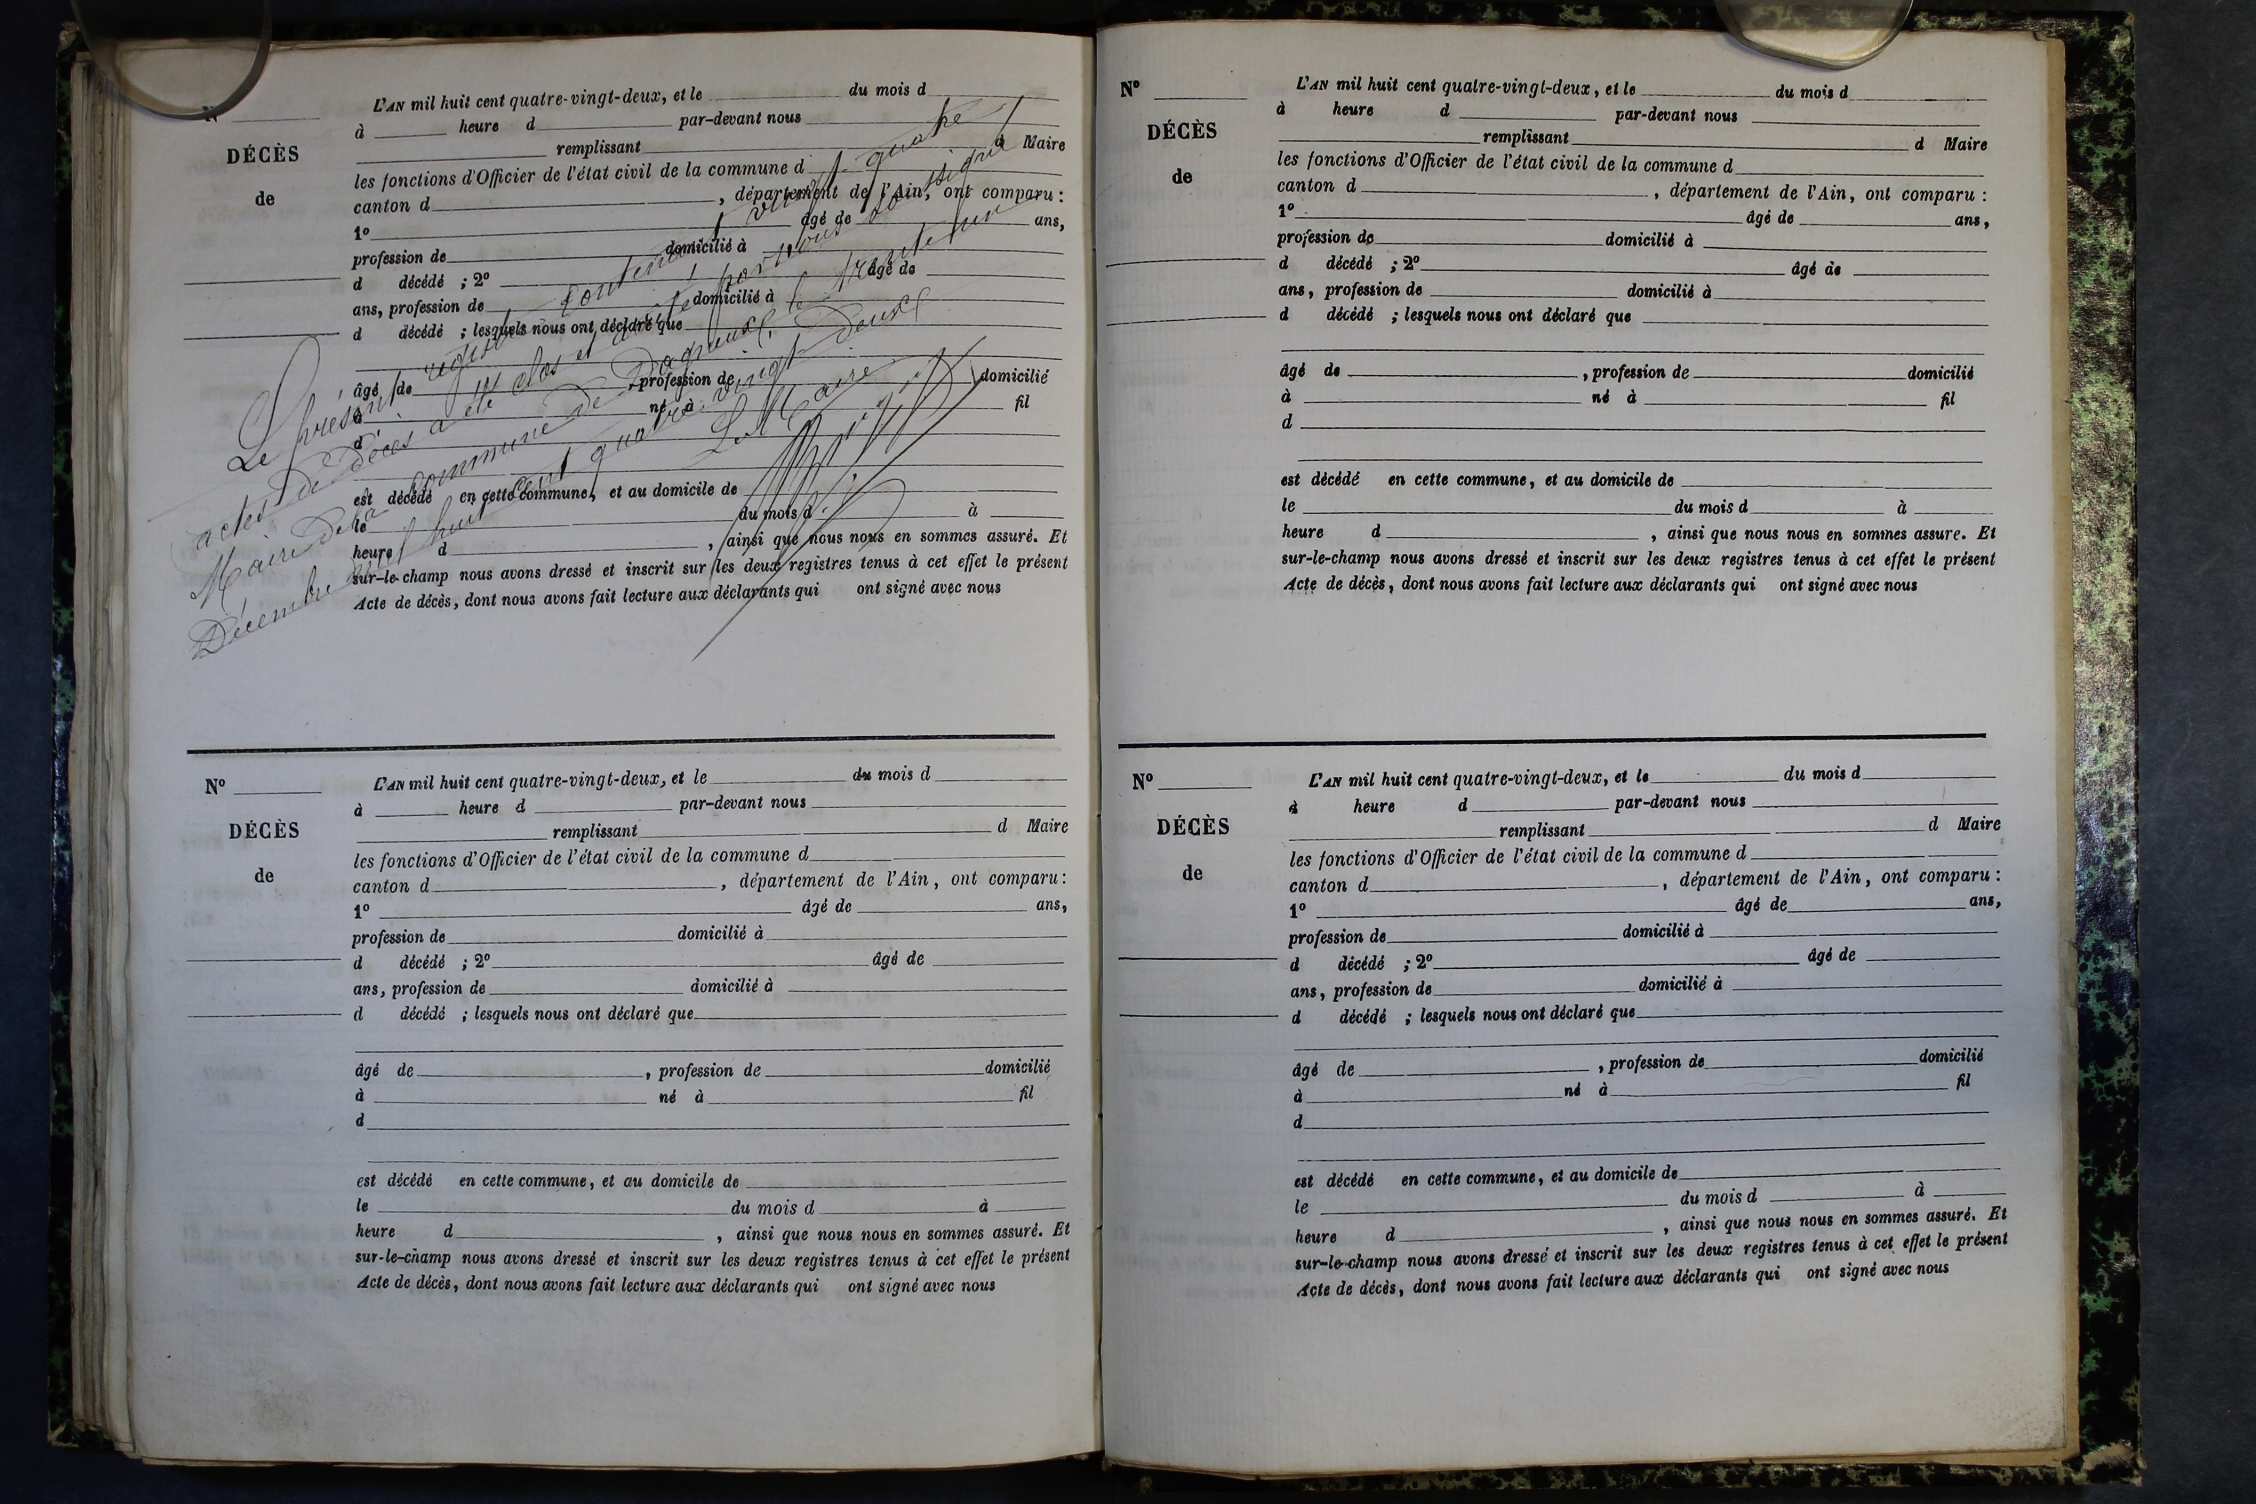 N° ______
DÉCÈS
de
L'AN mil huit cent quatre-vingt-deux, et le ______ du mois d ______
à ______ heure d ______ par-devant nous ______
______ remplissant ______ d Maire
les fonctions d'Officier de l'état civil de la commune d ______
canton d ______, département de l'Ain, ont comparu :
1° ______ âgé de ______ ans,
profession de ______ domicilié à ______
d décédé ; 2° ______ âgé de ______
ans, profession de ______ domicilié à ______
d décédé ; lesquels nous ont déclaré que ______
âgé de ______ profession de ______ domicilié
à ______ né à ______ fil
d ______
est décédé en cette commune, et au domicile de ______
le ______ du mois d ______ à ______
heure d ______, ainsi que nous nous en sommes assuré. Et
sur-le-champ nous avons dressé et inscrit sur les deux registres tenus à cet effet le présent
Acte de décès, dont nous avons fait lecture aux déclarants qui ont signé avec nous
Le présent registre contenant vingt-quatre
actes de Décès a été clos et arrêté par nous soussigné
Maire de la commune de Dagneux, le trente un
Décembre mil huit cent quatre-vingt Deux
Le Maire
N° ______
DÉCÈS
de
L'AN mil huit cent quatre-vingt-deux, et le ______ du mois d ______
à ______ heure d ______ par-devant nous ______
______ remplissant ______ d Maire
les fonctions d'Officier de l'état civil de la commune d ______
canton d ______, département de l'Ain, ont comparu :
1° ______ âgé de ______ ans,
profession de ______ domicilié à ______
d décédé ; 2° ______ âgé de ______
ans, profession de ______ domicilié à ______
d décédé ; lesquels nous ont déclaré que ______
âgé de ______, profession de ______ domicilié
à ______ né à ______ fil
d ______
est décédé en cette commune, et au domicile de ______
le ______ du mois d ______ à ______
heure d ______, ainsi que nous nous en sommes assuré. Et
sur-le-champ nous avons dressé et inscrit sur les deux registres tenus à cet effet le présent
Acte de décès, dont nous avons fait lecture aux déclarants qui ont signé avec nous
N° ______
DÉCÈS
de
L'AN mil huit cent quatre-vingt-deux, et le ______ du mois d ______
à heure d ______ par-devant nous ______
______ remplissant ______ d Maire
les fonctions d'Officier de l'état civil de la commune d ______
canton d ______, département de l'Ain, ont comparu :
1° ______ âgé de ______ ans,
profession de ______ domicilié à ______
d décédé ; 2° ______ âgé de ______
ans, profession de ______ domicilié à ______
d décédé ; lesquels nous ont déclaré que ______
âgé de ______, profession de ______ domicilié
à ______ né à ______ fil
d ______
est décédé en cette commune, et au domicile de ______
le ______ du mois d ______ à ______
heure d ______, ainsi que nous nous en sommes assure. Et
sur-le-champ nous avons dressé et inscrit sur les deux registres tenus à cet effet le présent
Acte de décès, dont nous avons fait lecture aux déclarants qui ont signé avec nous
N° ______
DÉCÈS
de
L'AN mil huit cent quatre-vingt-deux, et le ______ du mois d ______
à heure d ______ par-devant nous ______
______ remplissant ______ d Maire
les fonctions d'Officier de l'état civil de la commune d ______
canton d ______, département de l'Ain, ont comparu :
1° ______ âgé de ______ ans,
profession de ______ domicilié à ______
d décédé ; 2° ______ âgé de ______
ans, profession de ______ domicilié à ______
d décédé ; lesquels nous ont déclaré que ______
âgé de ______, profession de ______ domicilié
à ______ né à ______ fil
d ______
est décédé en cette commune, et au domicile de ______
le ______ du mois d ______ à ______
heure d ______, ainsi que nous nous en sommes assuré. Et
sur-le-champ nous avons dressé et inscrit sur les deux registres tenus à cet effet le présent
Acte de décès, dont nous avons fait lecture aux déclarants qui ont signé avec nous